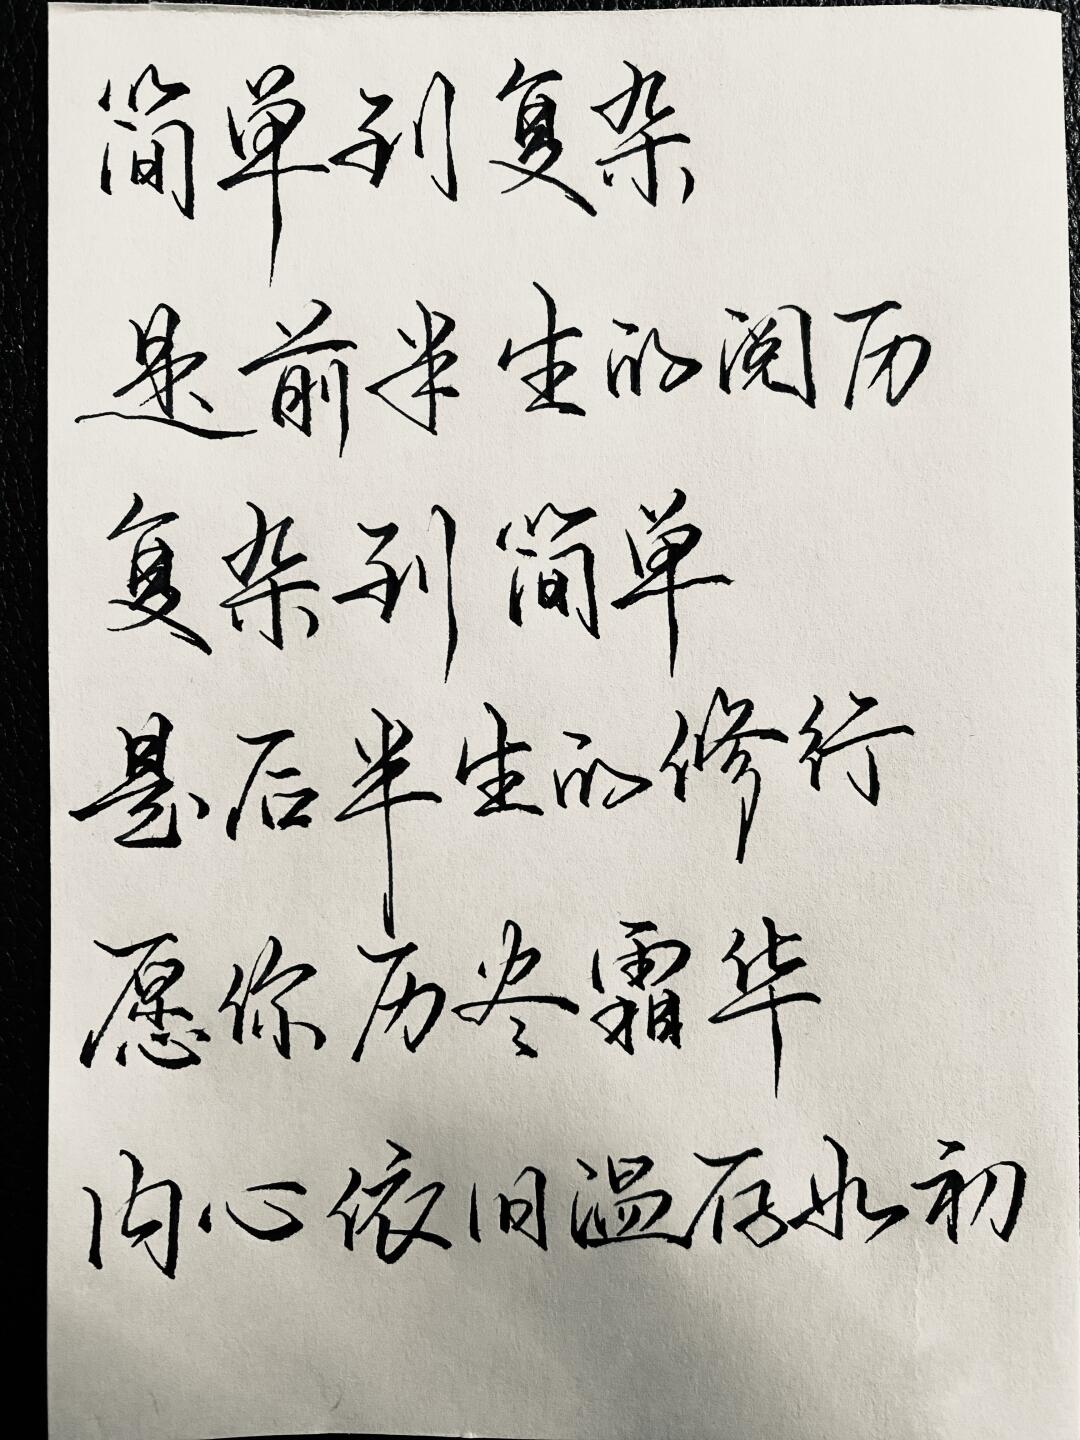 简单到复杂
是前半生的阅历
复杂到简单
是后半生的修行
愿你历尽霜华
内心依旧温存如初